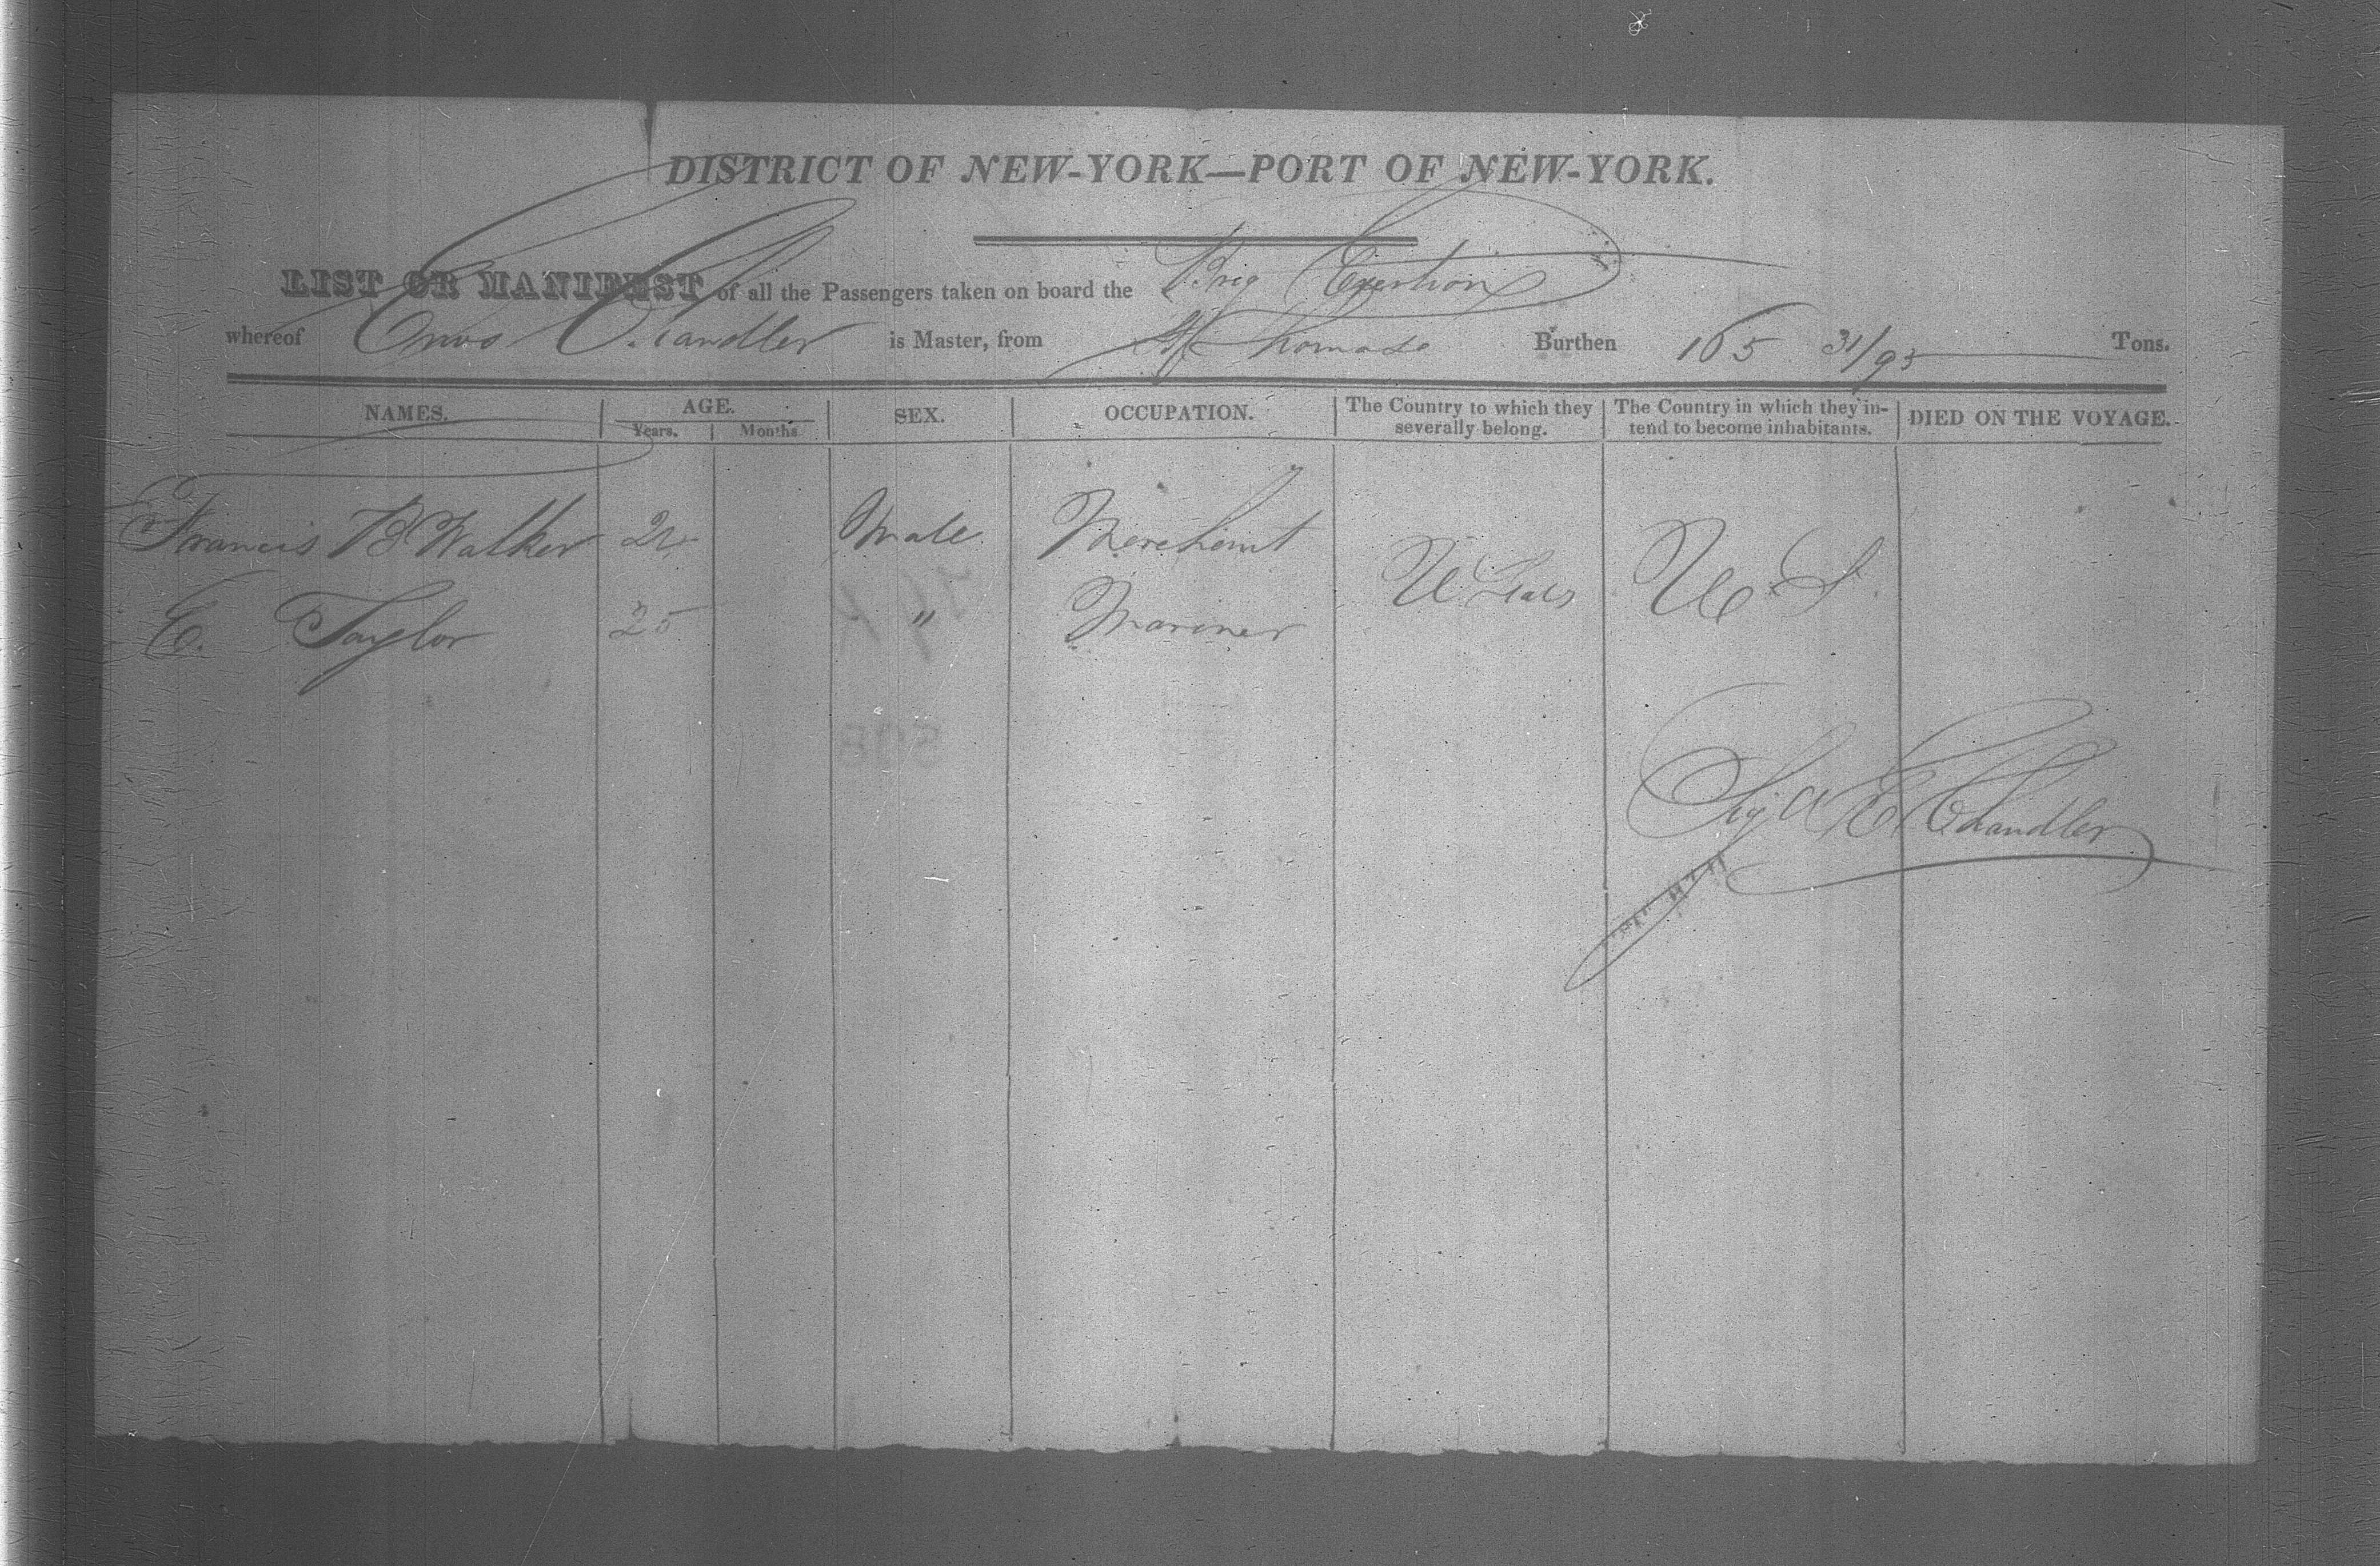 DISTRICT OF NEW-YORK—PORT OF NEW-YORK.
LIST OR MANIFEST of all the Passengers taken on board the Brig Exertion
whereof Enos Chandler is Master, from St Thomas Burthen 165 31/95 Tons.
NAMES. AGE. SEX. OCCUPATION. The Country to which they severally belong. The Country in which they in- DIED ON THE VOYAGE.
Years. Months tend to become inhabitants.
Francis B Walker Male Merchant
U States U.S.
E. Taylor 25 " Mariner
Sigd E Chandler